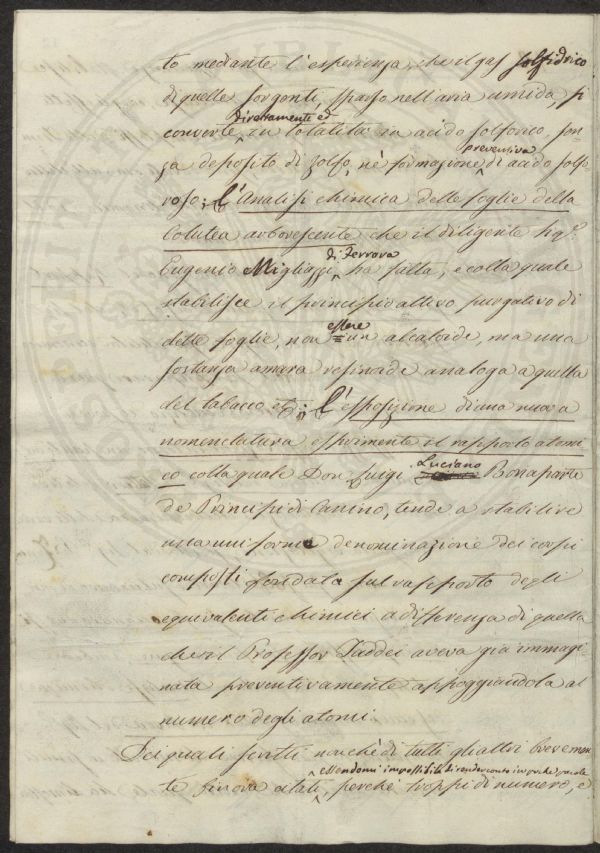 to mediante l'esperienza, che il gas solfidrico
di quelle sorgenti, sparso nell'aria umida, si
direttamente ed
converte in totalità in acido solforico, sen-
preventiva
za deposito di zolfo, nè formazione di acido solfo
roso; L'Analisi chimica delle foglie della
Colutea arborescente che il diligente Sigr.
di Ferrara
Eugenio Migliazzi, ha fatta, e colla quale
stabilisce il principio attivo purgativo di
essere
dette foglie, non un alcaloide, ma una
sostanza amara resinoide analoga a quella
del tabacco; L'esposizione di una nuova
nomenclatura esprimente il rapporto atomi
Luciano
co colla quale Don Luigi Bonaparte
de Principi di Canino, tende a stabilire
una uniforme denominazione dei corpi
composti fondata sul rapporto degli
equivalenti chimici a differenza di quella
che il Professor Taddei aveva già immagi-
nata preventivamente appoggiandola al
numero degli atomi
Dei quali scritti nonchè di tutti gli altri brevemen-
essendomi impossibile di render conto in poche parole
te finora citati, perchè troppi di numero, e